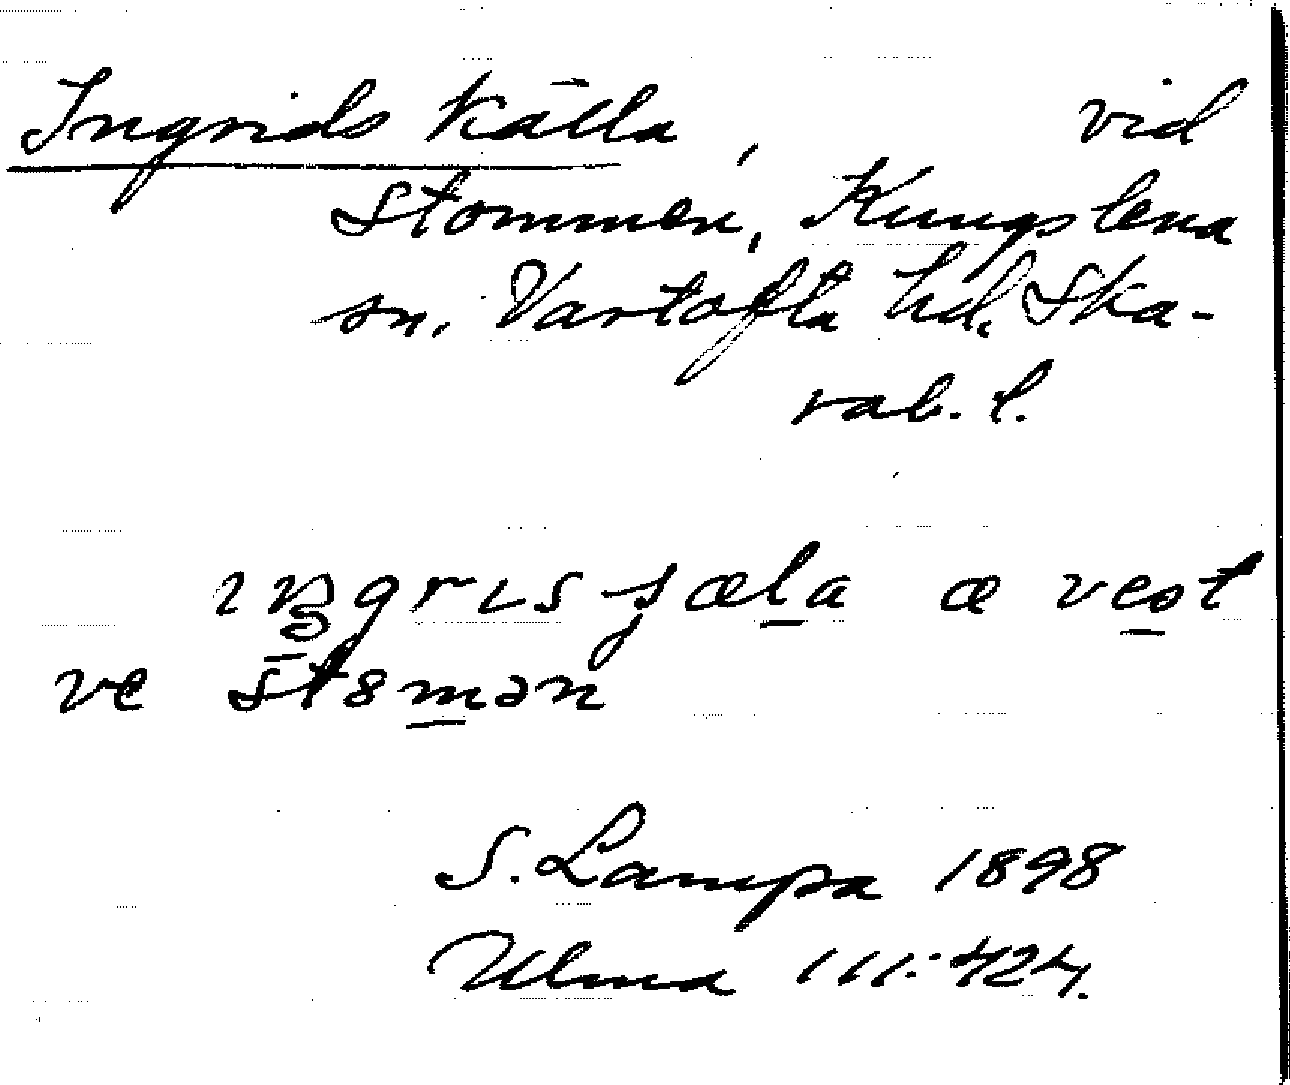 Ingrids källa, vid
Stommen, Kungslena
sn. Vartofta hd. Ska-
rab. l.
æ vest
ve
S. Lampa 1898
Ulma 111:424.